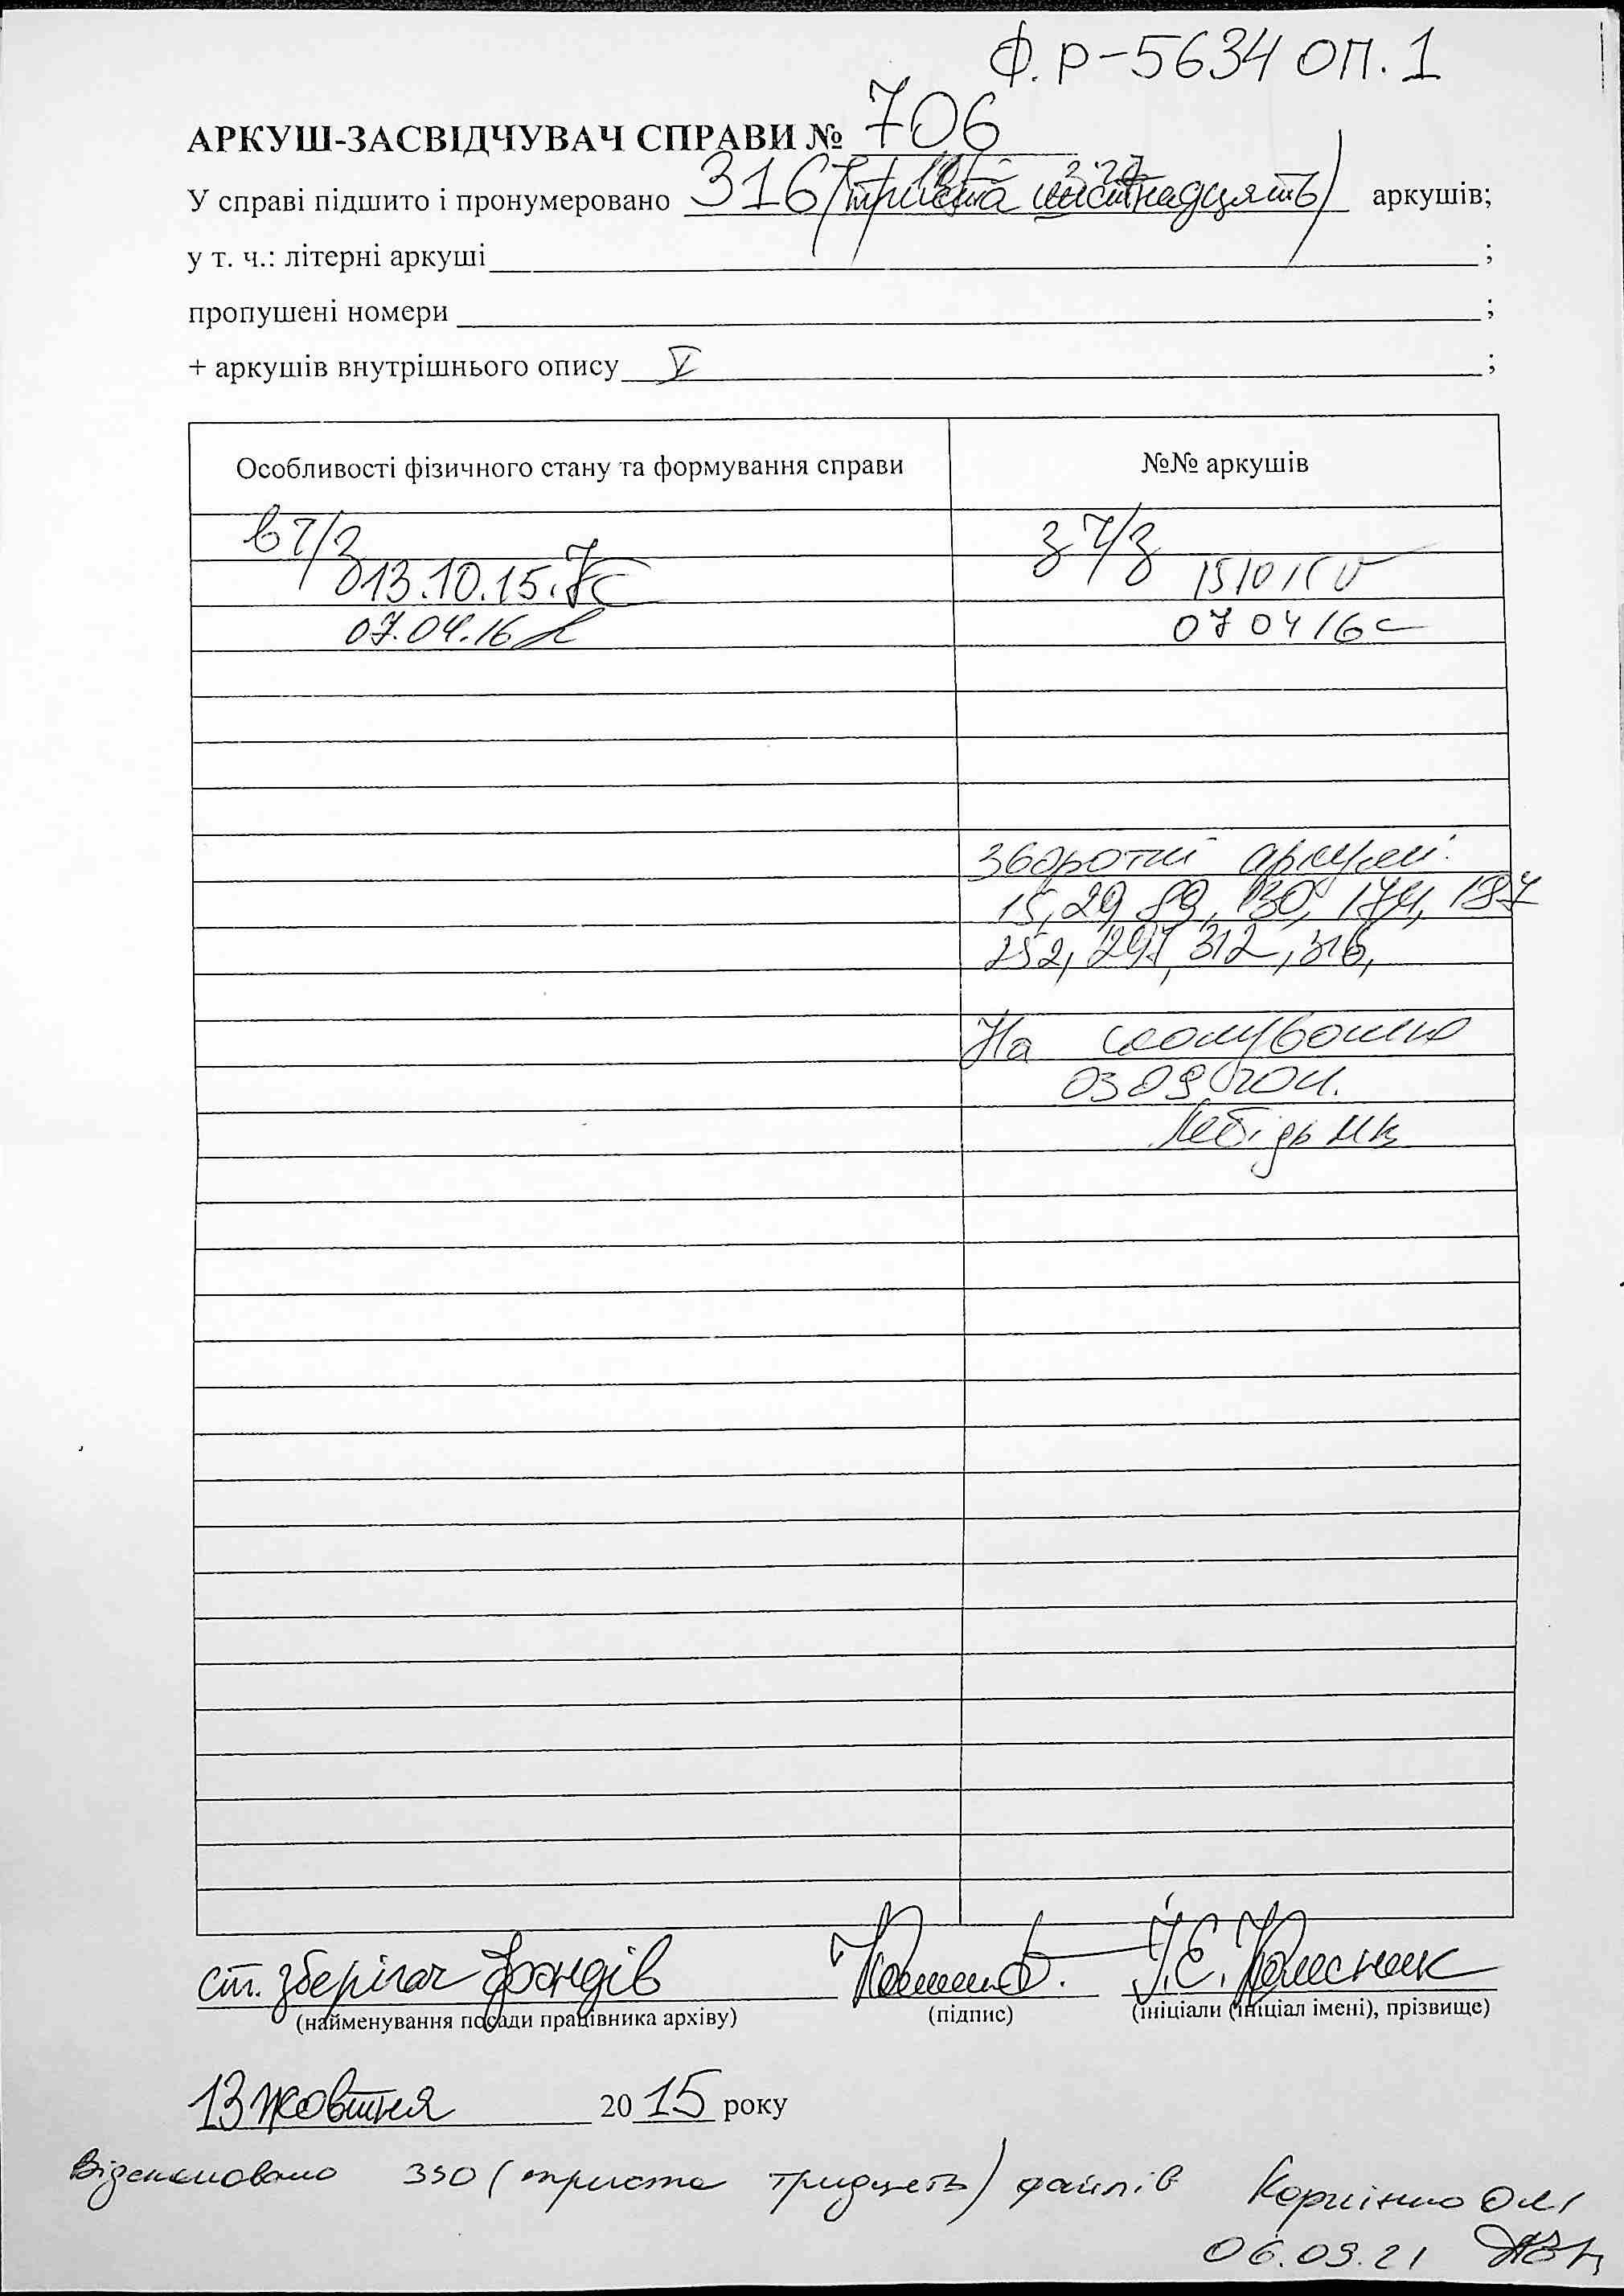 Ф. Р-5634 оп. 1
АРКУШ-ЗАСВІДЧУВАЧ СПРАВИ № 706
У справі підшито і пронумеровано 316 (триста шістнадцять) аркушів;
у т. ч.: літерні аркуші ;
пропущені номери ;
+ аркушів внутрішнього опису V ;
Особливості фізичного стану та формування справи
№№ аркушів
в т/з
з т/з
13.10.15.
07.04.16
07 04 16
Зворотні аркуші:
15, 29, 89, 130, 174, 187
252, 291, 312, 316,
На сканування
03 09 2021.
Лебідь
ст. зберігач фондів
І.Є. Колесник
(найменування посади працівника архіву)
(підпис)
(ініціали (ініціал імені), прізвище)
13 жовтня 2015 року
Відскановано 330 (триста тридцять) файлів
06.09.21